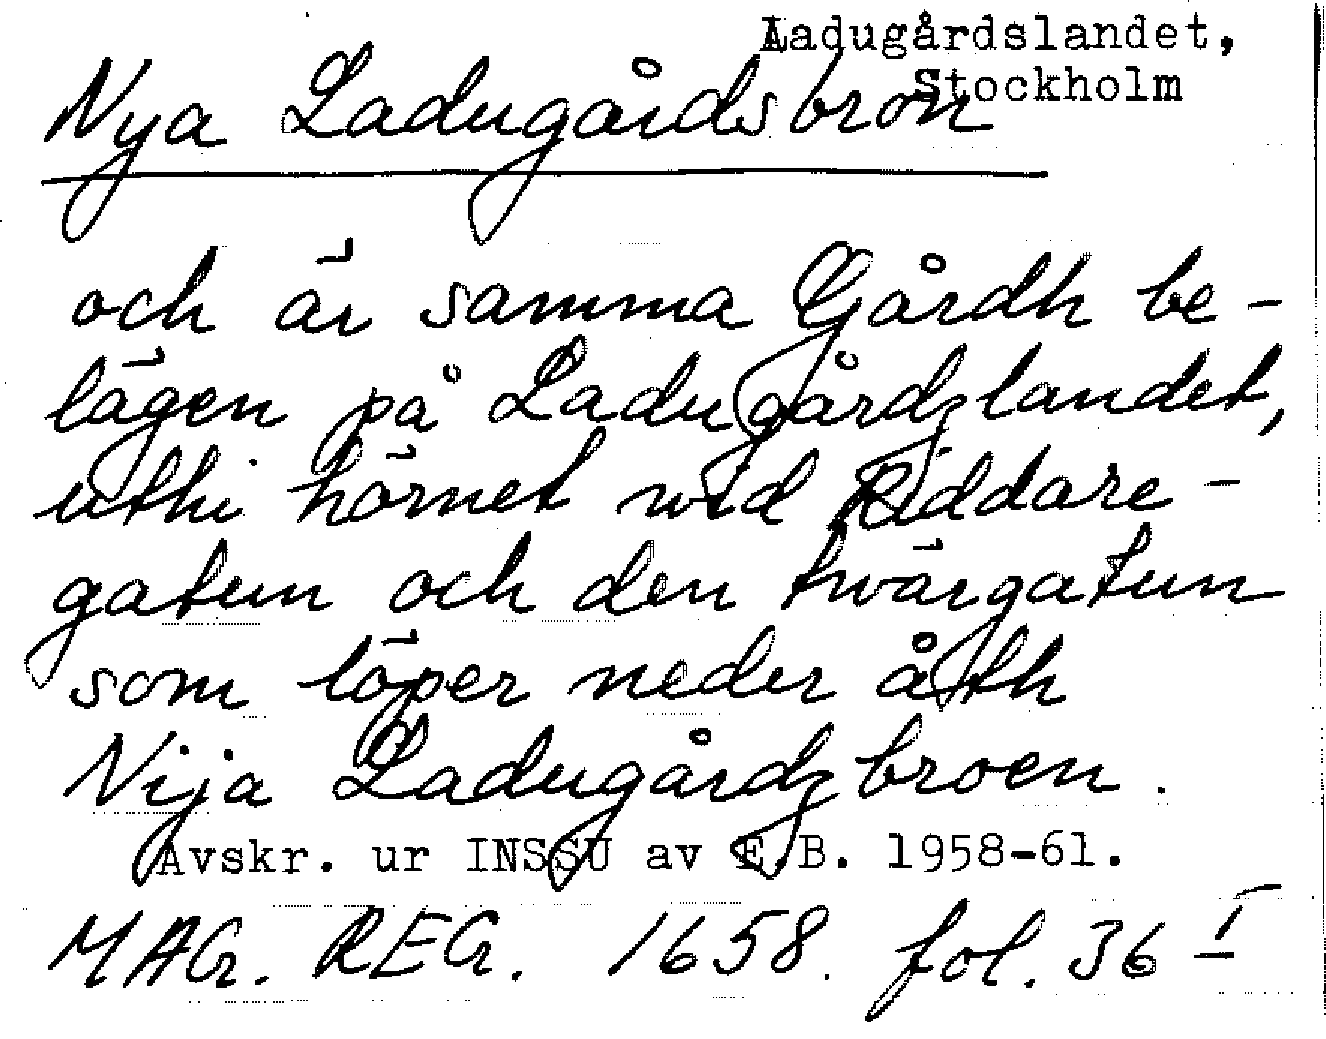 Ladugårdslandet,
Stockholm
Nya Ladugårdsbron
och är samma Gårdh be-
lägen på Ladugårdzlandet,
uthi hörnet wid Riddare-
gatun och den twärgatun
som löper neder åth
Nija Ladugårdzbroen.
Avskr. ur INSSU av E.B. 1958-61.
MAG. REG. 1658. fol. 36 I